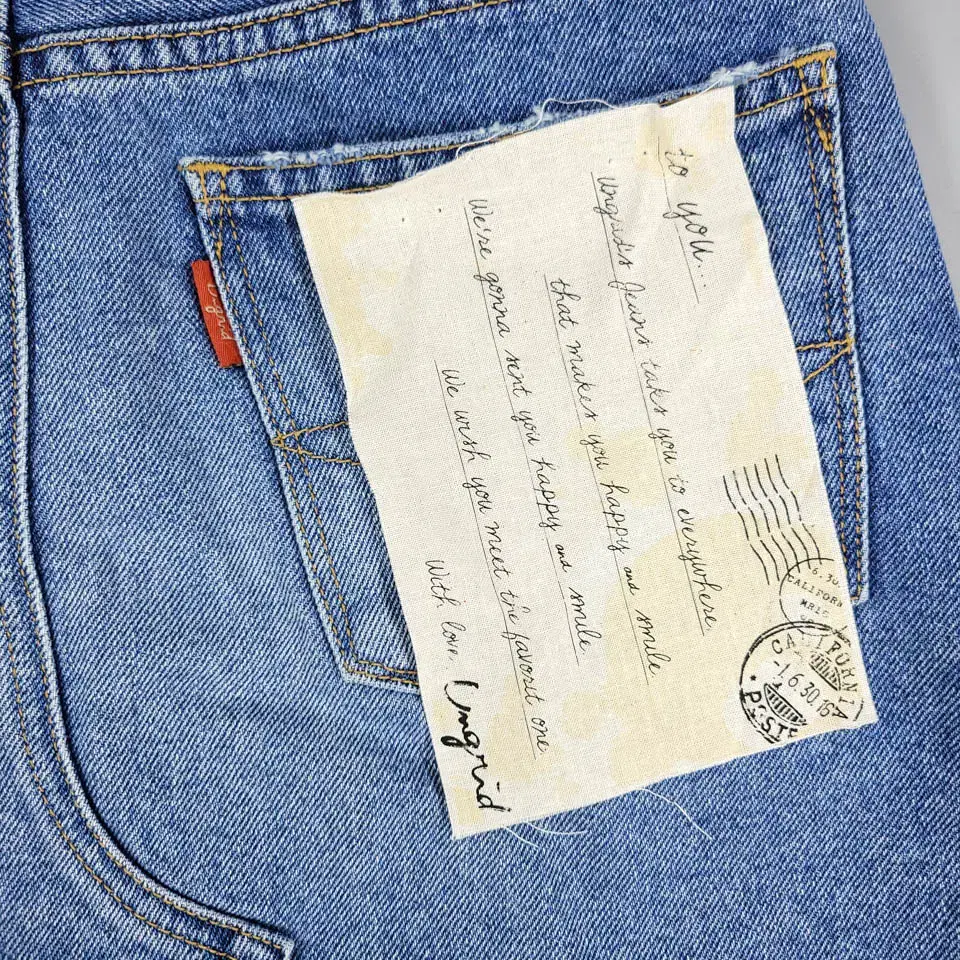 to you...
Ungrid's Jeans takes you to everywhere.
that makes you happy and smile.
We're gonna sent you happy and smile.
We wish you meet the favorit one.
With love.
Ungrid
6.30
CALIFORN
CALIFORNIA
-1.6.30.16
POST
Ungrid